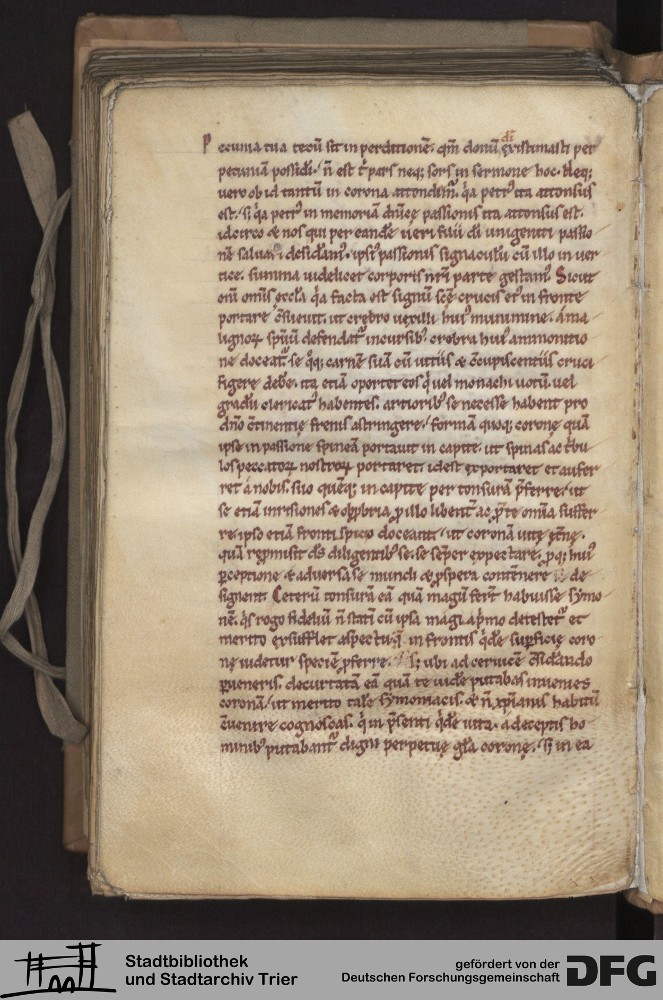 Pecunia tua tecũ sit in perditionẽ. qm̃ donũ dĩ existimasti per
pecuniã possidi. ñ est t' pars neq; sors in sermone hoc. Neq;
uero ob id tantũ in corona attondim̃. q̃a petrꝰ ita attonsus
est. s; q̃a petrꝰ in memoriã dñicę passionis ita attonsus est.
idcirco & nos qui per eandẽ ueri filii dĩ unigeniti passio
nẽ saluari desidamꝰ. ipsiꝰ passionis signaculũ cũ illo in uer
tice. summa uidelicet corporis nr̃i parte gestamꝰ. Sicut
enĩ omĩs eccl̃a q̃a facta est signũ scẽ crucis eiꝰ in fronte
portare c̃sueuit. ut crebro uexilli huiꝰ munimine. a ma
lignoꝝ sp̃uũ defendatꝰ incursibꝰ. crebra huiꝰ ammonitio
ne doceatꝰ. se q̊q; carnẽ suã cũ uitiis & c̃cupiscentiis cruci
figere debere. ita etiã oportet eos q̃ uel monachi uotũ. uel
gradũ clericatꝰ habentes. artioribꝰ se necesse habent pro
dño c̃tinentię frenis astringere. formã quoq; coronę quã
ipse in passione spineã portauit in capite. ut spinas ac t'bu
los peccatoꝝ nostroꝝ portaret. id est exportaret et aufer
ret a nobis. suo quẽq; in capite per tonsurã p̃ferre. ut
se etiã inrisiones & opp̃bria p̱ illo libent̃ ac p̱̃te omĩa suffer
re. ipso etiã frontispicio doceant. ut coronã uitę ęt̃nę.
quã rep̱misit dr̃s diligentibꝰ se. se sẽper expectare. p̱q; huiꝰ
p̱ceptione & aduersa se mundi & p̱spera contẽnere de
signent. Ceterũ tonsurã eã quã magũ fert̃ habuisse symo
nẽ. q̃s rogo fideliũ ñ statĩ cũ ipsa magia p̃mo detestet̃ et
merito exsufflet aspectu. q̃ in frontis q̃dẽ sup̱ficie coro
nę uidetur speciẽ p̃ferre. s; ubi ad ceruicẽ c̃siderando
p̱ueneris. decurtatã eã quã te uidẽ putabas inuenies
coronã. ut merito tale symoniacis. & ñ xp̃ianis habitũ
c̃uenire cognoscas. q̃ in p̃senti q̃dẽ uita. a deceptis ho
minibꝰ putabant̃ digni perpetuę gl̃a coronę. s; in ea
Stadtbibliothek
und Stadtarchiv Trier
gefördert von der
Deutschen Forschungsgemeinschaft
DFG